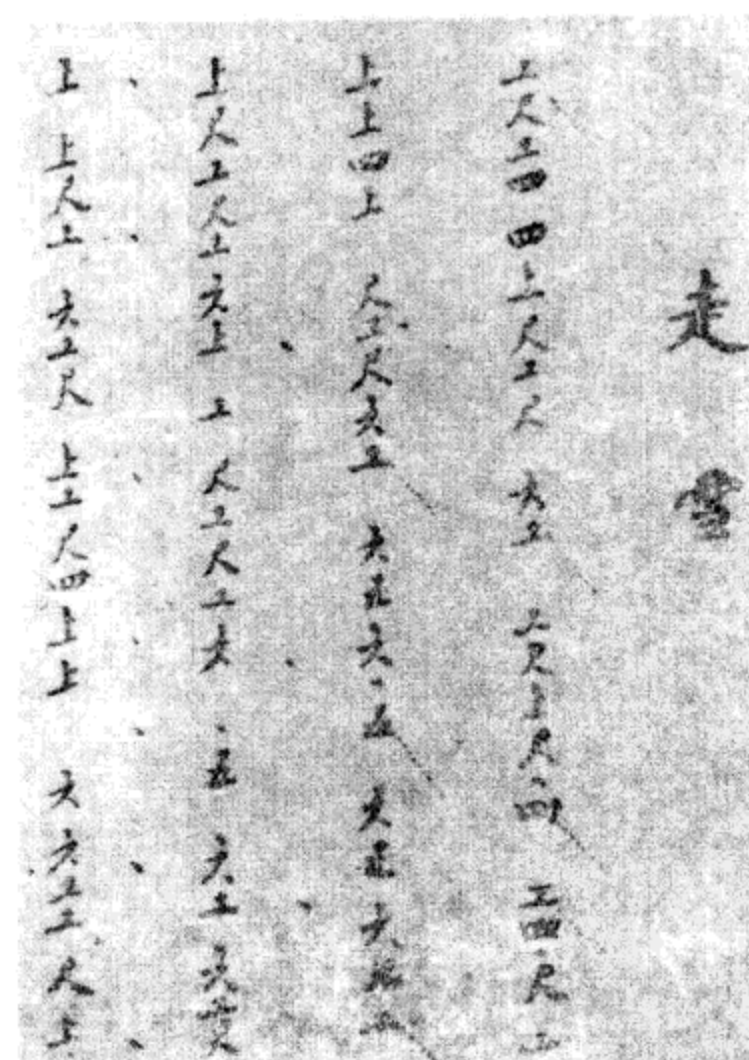 走雪
工尺工四 四上尺工尺 六工 工尺上尺四 工四尺工
上上四上 尺工尺六工 六五六五 六五六
上尺工尺上六上 工 尺工尺工六 五 六工 六工尺
上 上尺上 六工尺 上工尺四上上 六六工工尺上